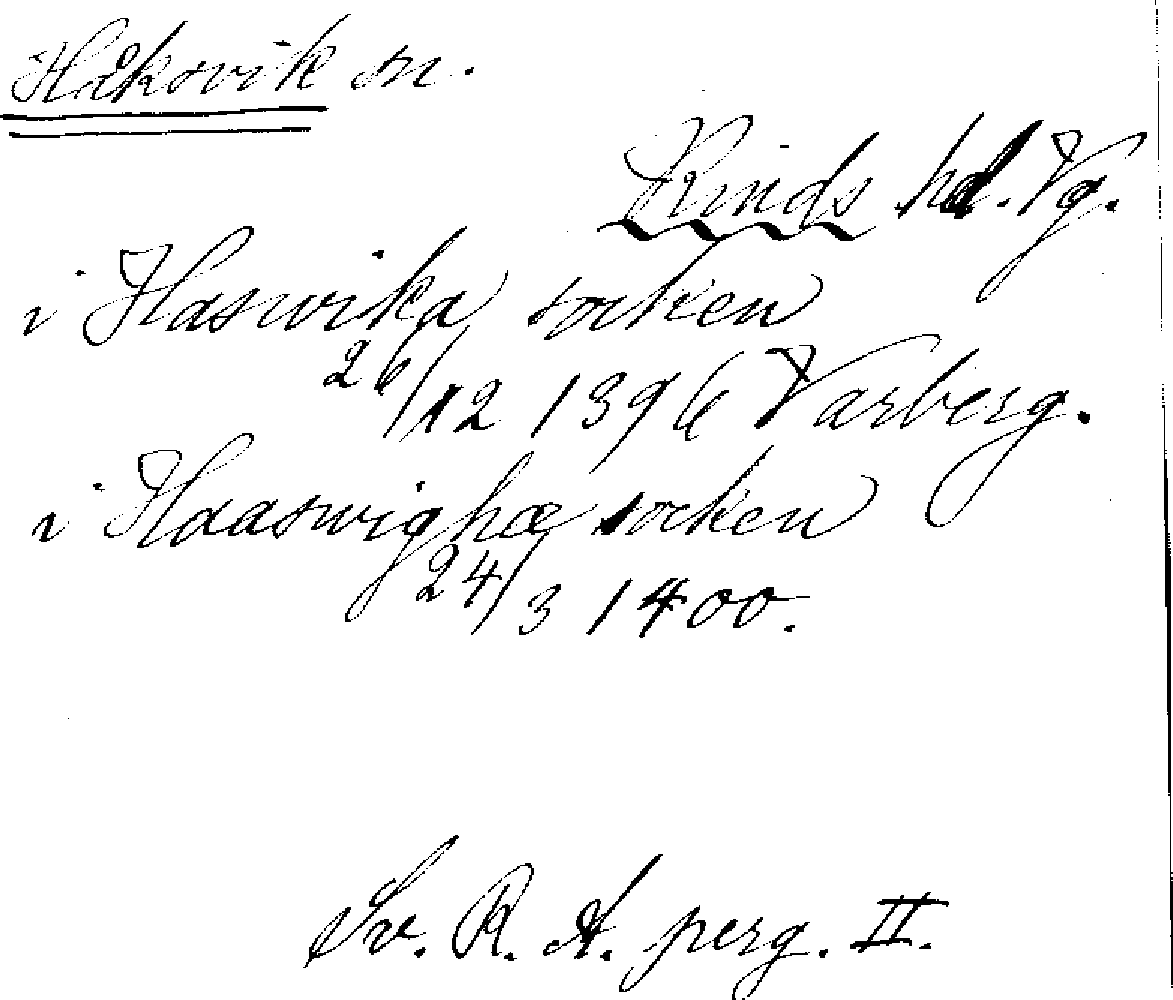 Håksvik sn.
Kinds hd. Vg.
i Haswika socken
26/12 1396 Varberg.
i Haaswighæ socken
24/3 1400.
Sv. R. A. perg. II.